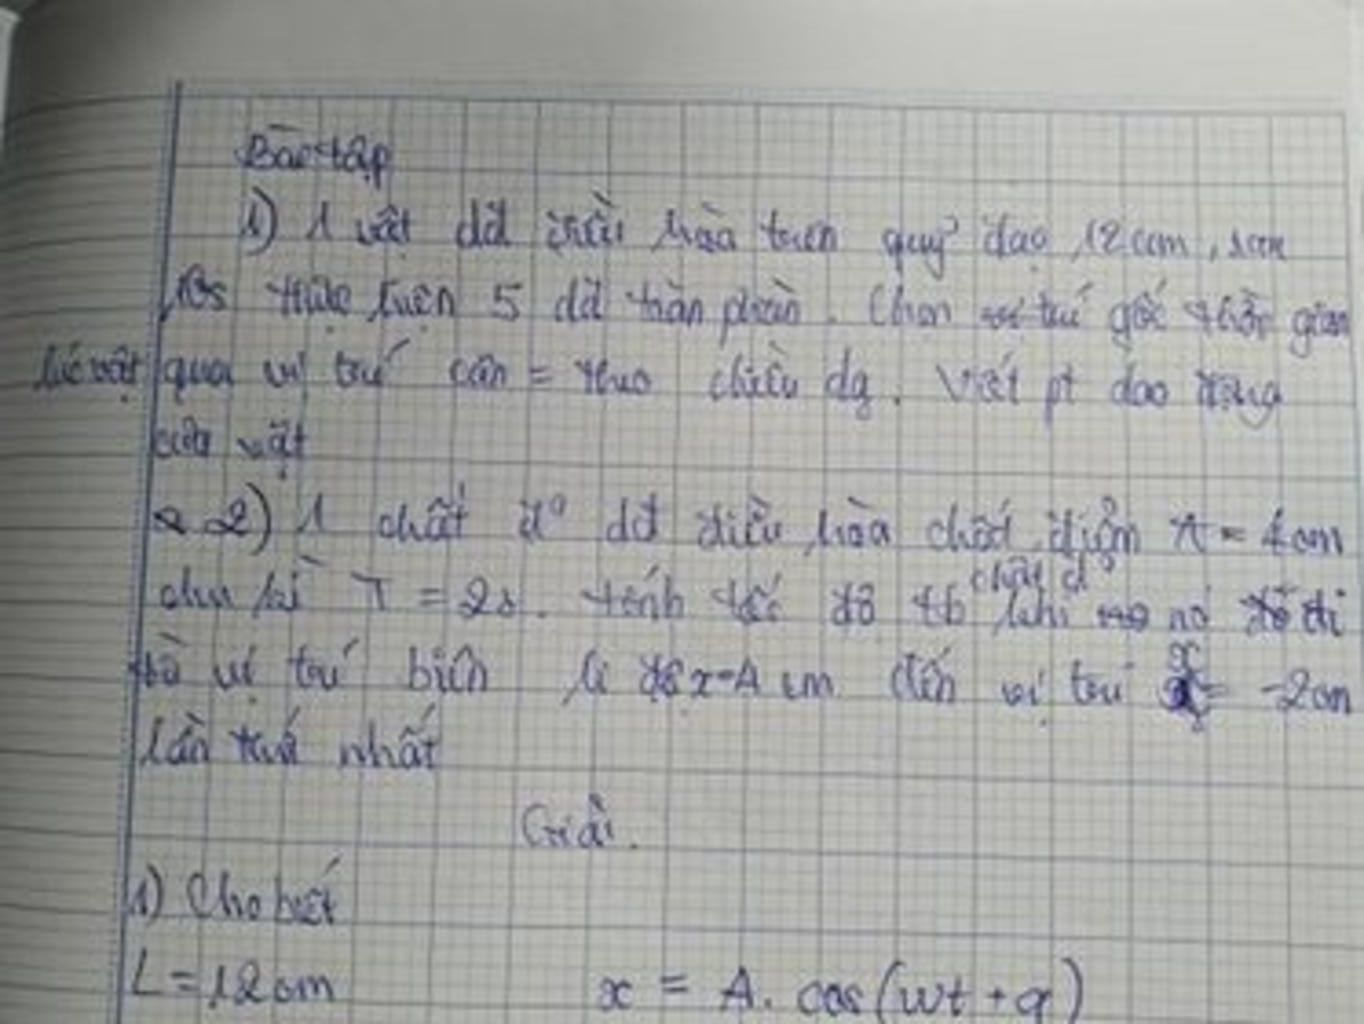 Bài tập
1) 1 vật dđ điều hòa trên quỹ đạo 12cm, sau
10s thực hiện 5 dđ toàn phần. Chọn gốc thời gian
lúc vật qua vị trí cân = theo chiều dg. Viết pt dao động
của vật
2) 1 chất đ° dđ điều hòa chất điểm A = 4cm
chu kì T = 2s. tính tốc độ tb chất đ° khi nó đi
từ vị trí biên li độ x=A cm đến vị trí x = -2cm
lần thứ nhất
Giải.
1) Cho biết
L = 12cm x = A. cos(wt + φ)